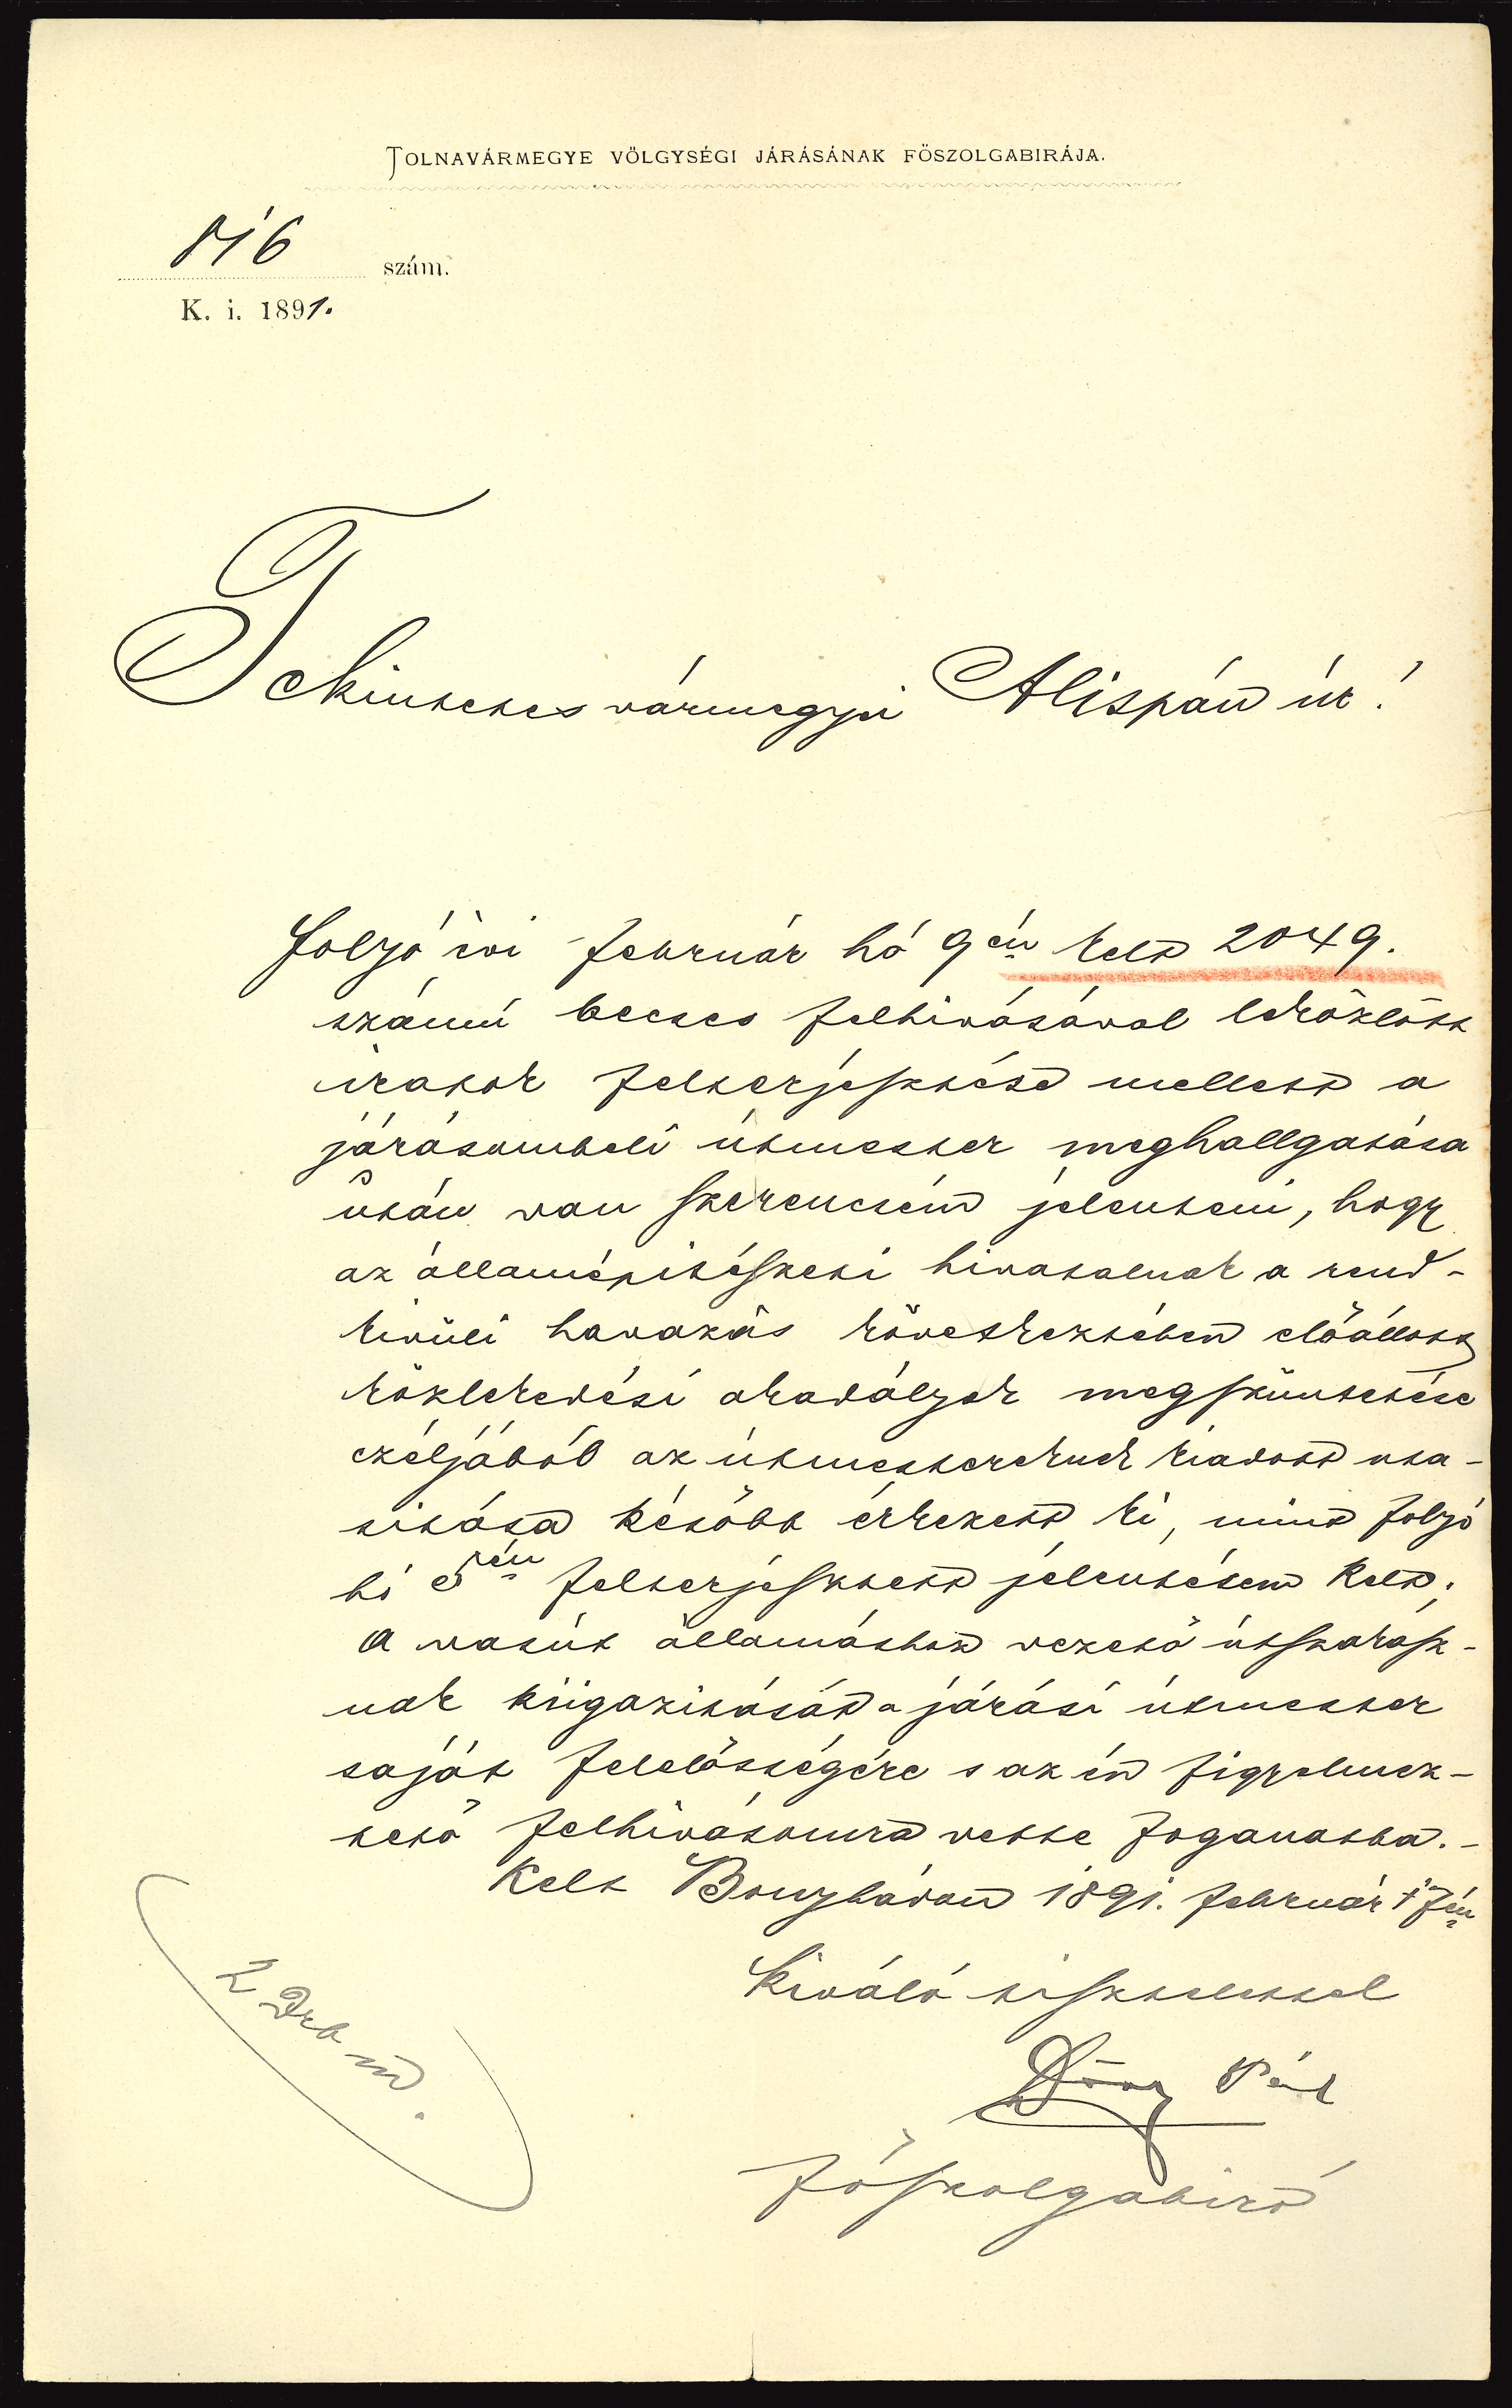 TOLNAVÁRMEGYE VÖLGYSÉGI JÁRÁSÁNAK FŐSZOLGABIRÁJA.
816 szám.
K. i. 1891.
Tekintetes vármegyei Alispán úr!
folyó évi február hó 9én kelt 2049.
számú becses felhivásával leközlött
iratok felterjesztése mellett a
járásombeli útmester meghallgatása
után van szerencsém jelenteni, hogy
az államépitészeti hivatalnak a rend-
kivüli havazás következtében előállott
közlekedési akadályok megszüntetése
czéljából az útmestereknek kiadott uta-
sitása később érkezett ki, mint folyó
hó 5én felterjesztett jelentésem kelt.
A vasút állomáshoz vezető útszakasz-
nak kiigazitását a járási útmester
saját felelősségére s az én figyelmez-
tető felhivásomra vette foganatba.-
Kelt Bonyhádon 1891. február 17én
Kiváló tisztelettel
Döry Pál
főszolgabiró
2 Drb